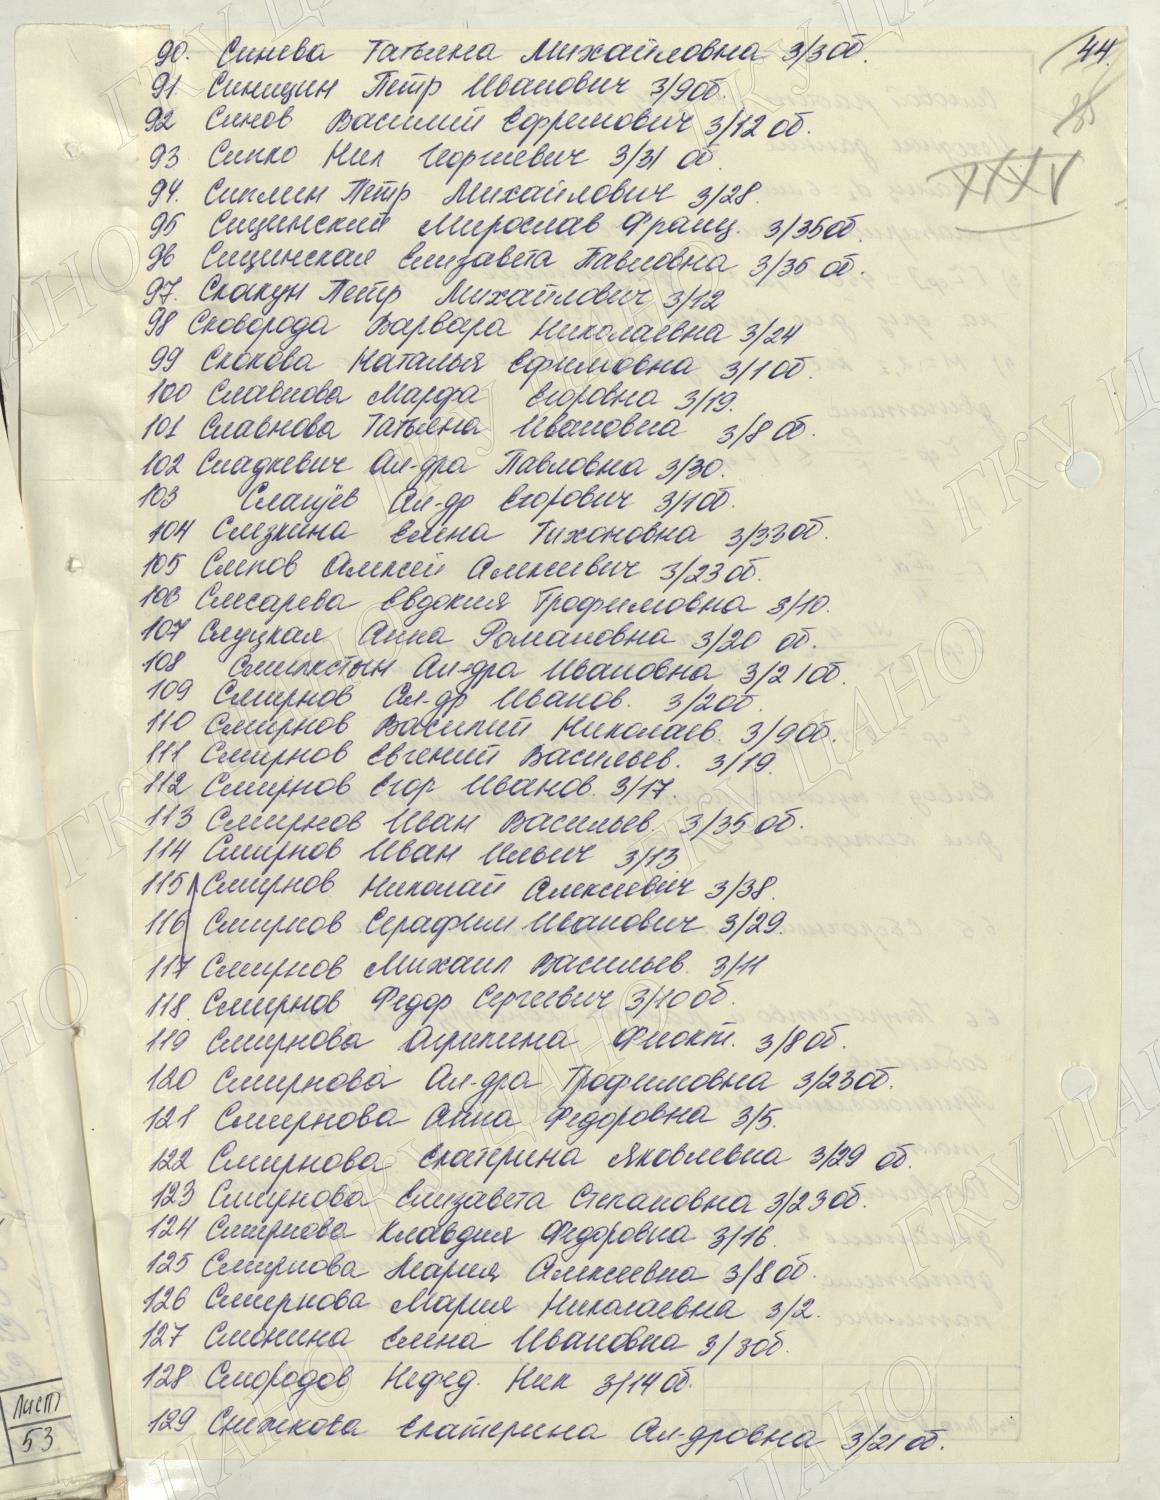 44.
XXXV
90. Синева Татьяна Михайловна 3/3об.
91 Синицин Петр Иванович 3/9об.
92 Синов Василий Ефремович 3/12 об.
93 Сипко Нил Георгиевич 3/31 об.
94. Сиплин Петр Михайлович 3/28.
95 Сицинский Мирослав Франц. 3/35об.
96 Сицинская Елизавета Павловна 3/35 об.
97. Скакун Петр Михайлович 3/12
98 Сковорода Варвара Николаевна 3/24
99 Скокова Наталья Ефимовна 3/1об.
100 Славнова Марфа Егоровна 3/19.
101 Славнова Татьяна Ивановна 3/8 об.
102 Сладкевич Ал-дра Павловна 3/30.
103 Слащёв Ал-др Егорович 3/1об.
104 Слезкина Елена Тихоновна 3/33об.
105 Слепов Алексей Алексеевич 3/23 об.
106 Слесарева Евдокия Трофимовна 3/10.
107 Слуцкая Анна Романовна 3/20 об.
108 Ал-дра Ивановна 3/21об.
109 Смирнов Ал-др Иванов. 3/2об.
110 Смирнов Василий Николаев. 3/9об.
111 Смирнов Евгений Васильев. 3/19.
112 Смирнов Егор Иванов. 3/17.
113 Смирнов Иван Васильев. 3/35 об.
114 Смирнов Иван Ильич 3/13
115 Смирнов Николай Алексеевич 3/38.
116 Смирнов Серафим Иванович 3/29.
117 Смирнов Михаил Васильев. 3/11
118. Смирнов Федор Сергеевич 3/10 об.
119 Смирнова Агрипина Фиокт. 3/8об.
120 Смирнова Ал-дра Трофимовна 3/23об.
121 Смирнова Анна Федоровна 3/5.
122 Смирнова Екатерина Яковлевна 3/29 об.
123 Смирнова Елизавета Степановна 3/23об.
124 Смирнова Клавдия Федоровна 3/16.
125 Смирнова Мария Алексеевна 3/8 об.
126 Смирнова Мария Николаевна 3/2.
127 Смонина Елена Ивановна 3/3об.
128 Смородов Нефед. Ник 3/14 об.
129 Снежкова Екатерина Ал-дровна 3/21 об.
Лист
53
ГКУ ЦАНО